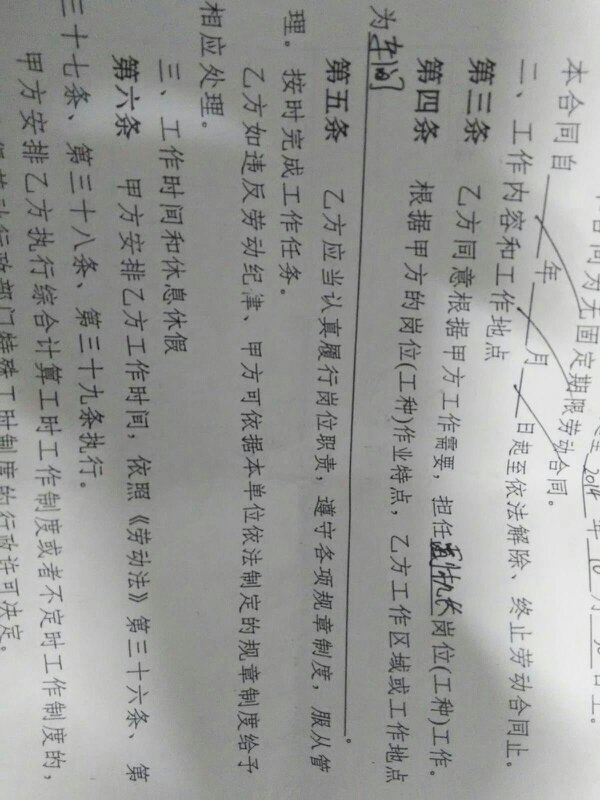 2014年10月30日止。
本合同为无固定期限劳动合同。
本合同自 年 月 日起至依法解除、终止劳动合同止。
二、工作内容和工作地点
第三条 乙方同意根据甲方工作需要，担任 岗位(工种)工作。
第四条 根据甲方的岗位(工种)作业特点，乙方工作区域或工作地点
为车间
。
第五条 乙方应当认真履行岗位职责，遵守各项规章制度，服从管
理。按时完成工作任务。
乙方如违反劳动纪津、甲方可依据本单位依法制定的规章制度给予
相应处理。
三、工作时间和休息休假
第六条 甲方安排乙方工作时间，依照《劳动法》第三十六条、第
三十七条、第三十八条、第三十九条执行。
甲方安排乙方执行综合计算工时工作制度或者不定时工作制度的，
劳动行政部门特殊工时制度的行政许可决定。